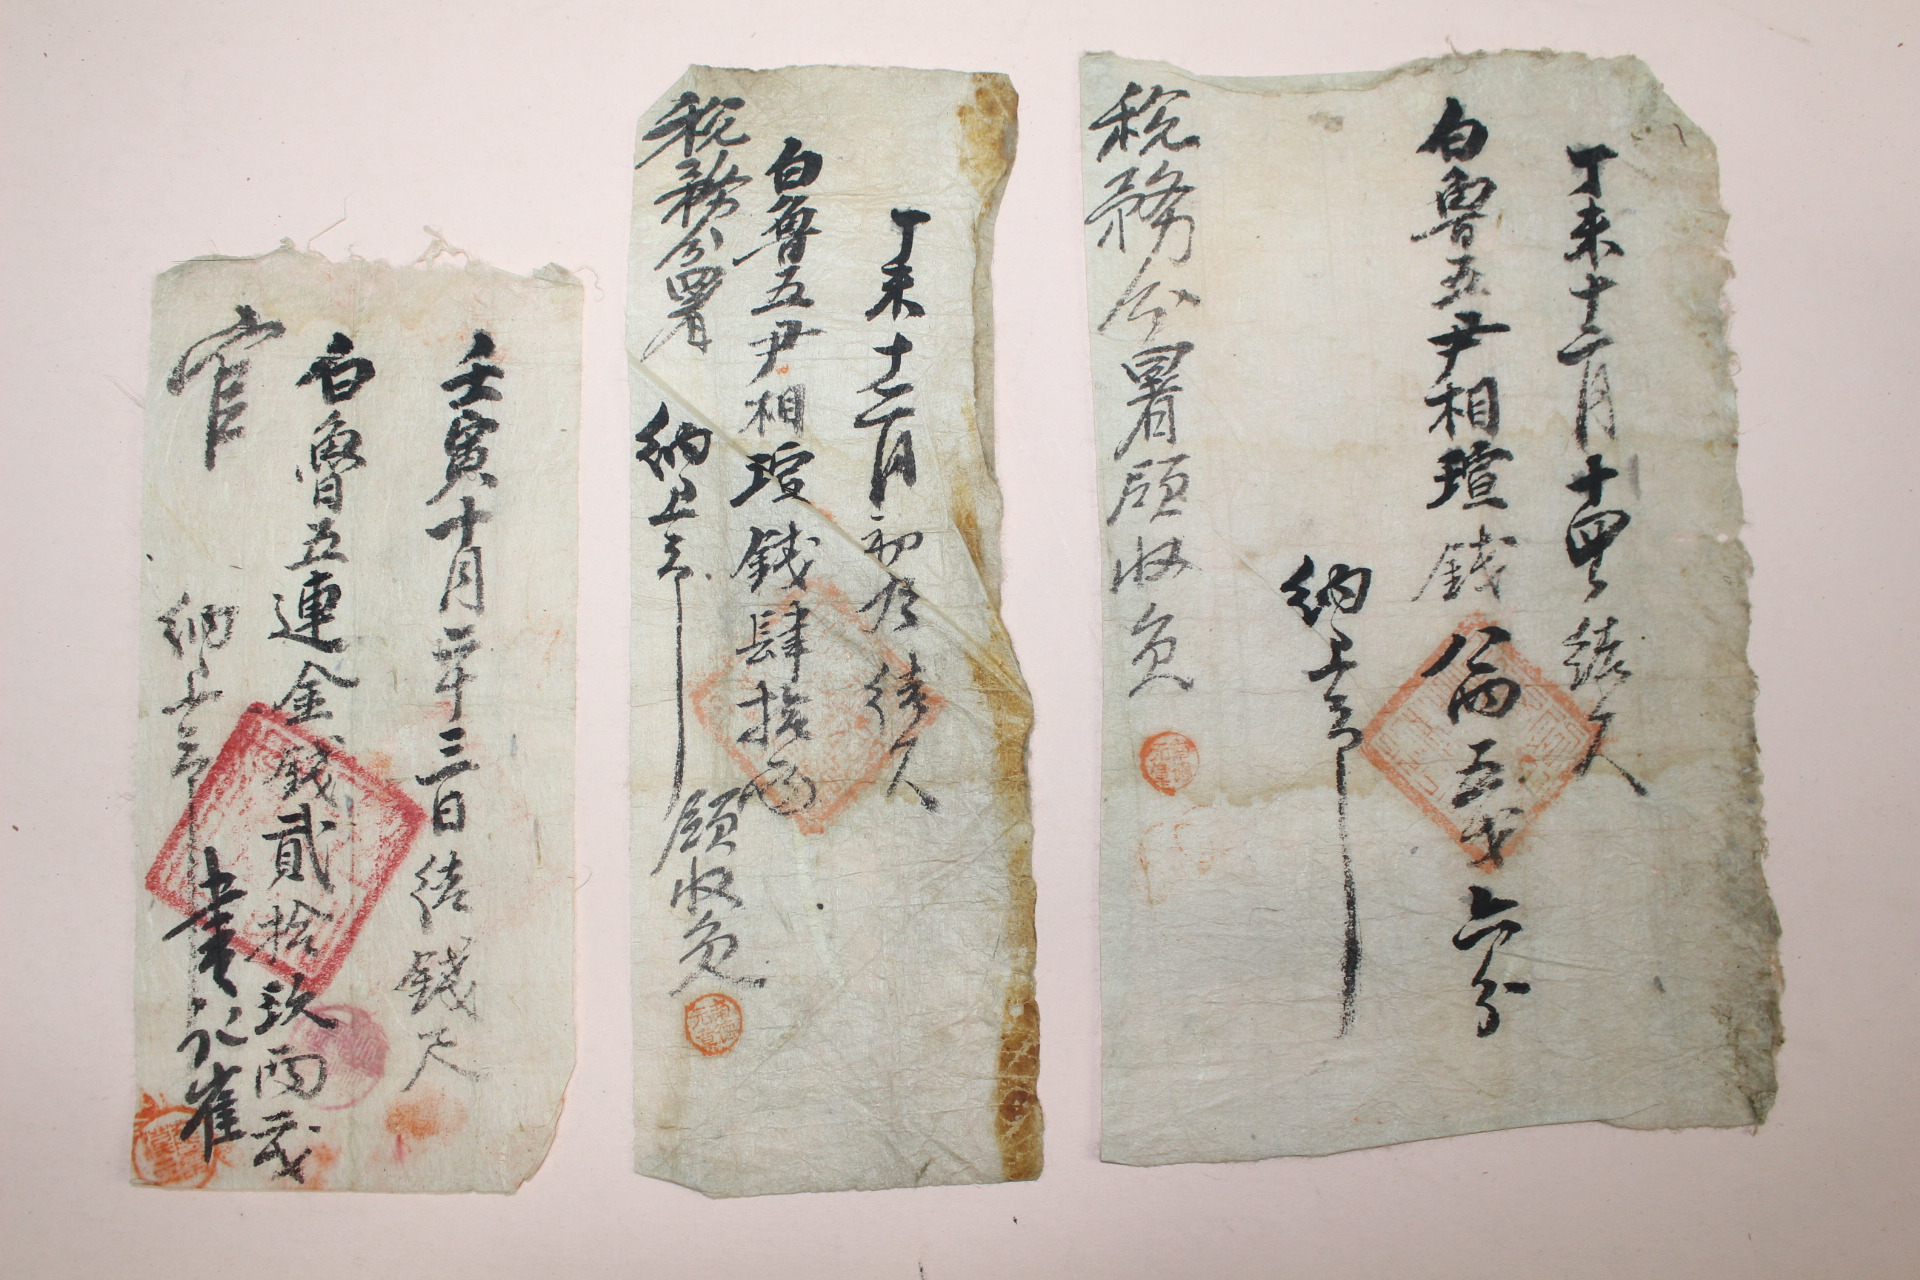 丁未十二月十四日 結人
白魯五尹相瑄錢 八両五戔六分
納上印
税務分署領収員
丁未十二月初 結人
白魯五尹相瑄錢肆拾両
税務分署
納上印
領収員
壬寅十月二十三日結錢尺
白魯五連金錢貳拾玖両二戔
納上印
書記崔
官